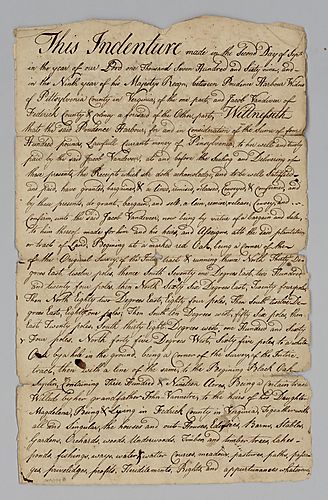 This Indenture made in the Second Day of
in the year of our Lord one Thousand Seven Hundred and Sixty nine, and
in the Ninth year of his Majestys Reign, between Prudence Harbour Widow
of Pittsylvania County in Virginia, of the one part, and Jacob Vandever of
Frederick County & Colony aforesaid of the Other part, Witnesseth
that the said Prudence Harbour, for and in consideration of the Sum of four
Hundred pounds, Lawfull Currant money of Pensylvania to her well and truly
paid by the said Jacob Vandever, at and before the Sealing and Delivering of
these presents, the Receipt which she doth acknowledge, and to be well Satisfied
and paid, have granted, bargained, & released, Convey & confirmed, and
by these presents, do grant, bargain, and sell, alien, remise, release, Convey and
Confirm, unto the said Jacob Vandever, now being by virtue of a bargain and sale,
to him thereof made for him and his heirs, and Assigns all the said plantation
or tract of Land, Begining at a marked red Oak, being a Corner of
of the Original Survey of the tract & running thence North Thirty De-
grees East, twelve poles, thence South Seventy one Degrees East, two Hundred
and twenty four poles, then North Sixty six Degrees East, Twenty four poles,
Then North Eighty two Degrees East, eighty four poles, Then South twelve De-
grees East, eighteen poles, Then South ten Degrees west, fifty six poles, then
East Twenty poles, South thirty Eight Degrees west, one Hundred and Sixty
& Four poles, North forty five Degrees West, Sixty five poles, to a white
Oak by a in the ground, being a corner of the Survey of the
tract, thence with a line of the same, to the Begining Black Oak
Containing Three Hundred & Nineteen Acres, Being a certain tract
Willed by her grandfather John Vanmetre, to the heirs of his Daughter
Magdalena, Being & Lyeing in Fredrick County in Virginia, Together with
all and Singular, the houses and out-Houses, Edifices, Barns, Stables
Gardens, Orchards, woods, Underwoods, Timber and timber trees, Lakes
ponds, fishings, ways, water & water courses, meadows, pastures, paths, passa-
ges, priviledges, profits, Hereditaments, Rights, and appurtenances whatsoever